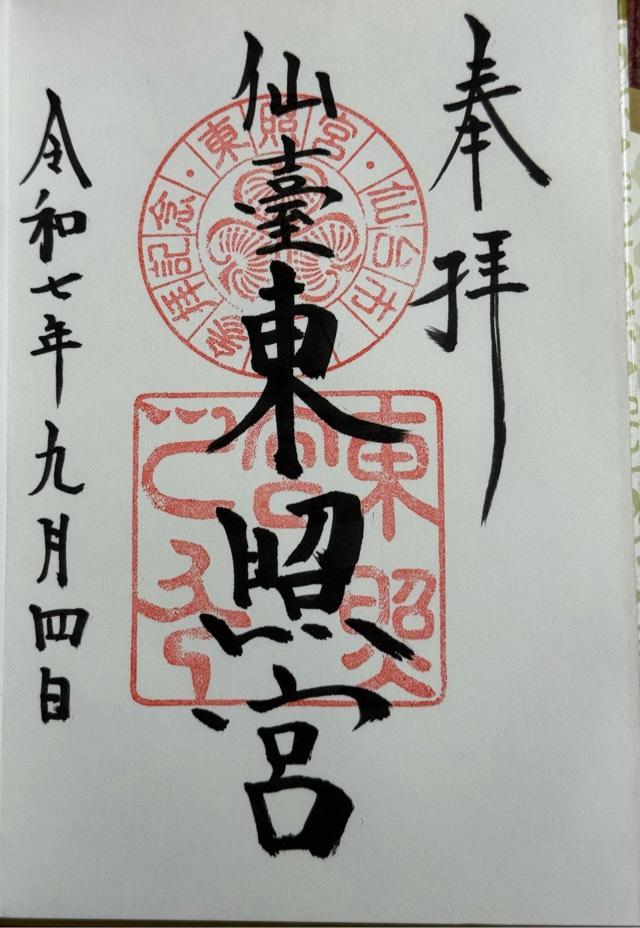 奉拝
仙臺東照宮
令和七年九月四日
東照宮・仙台市・参拝記念
東照宮